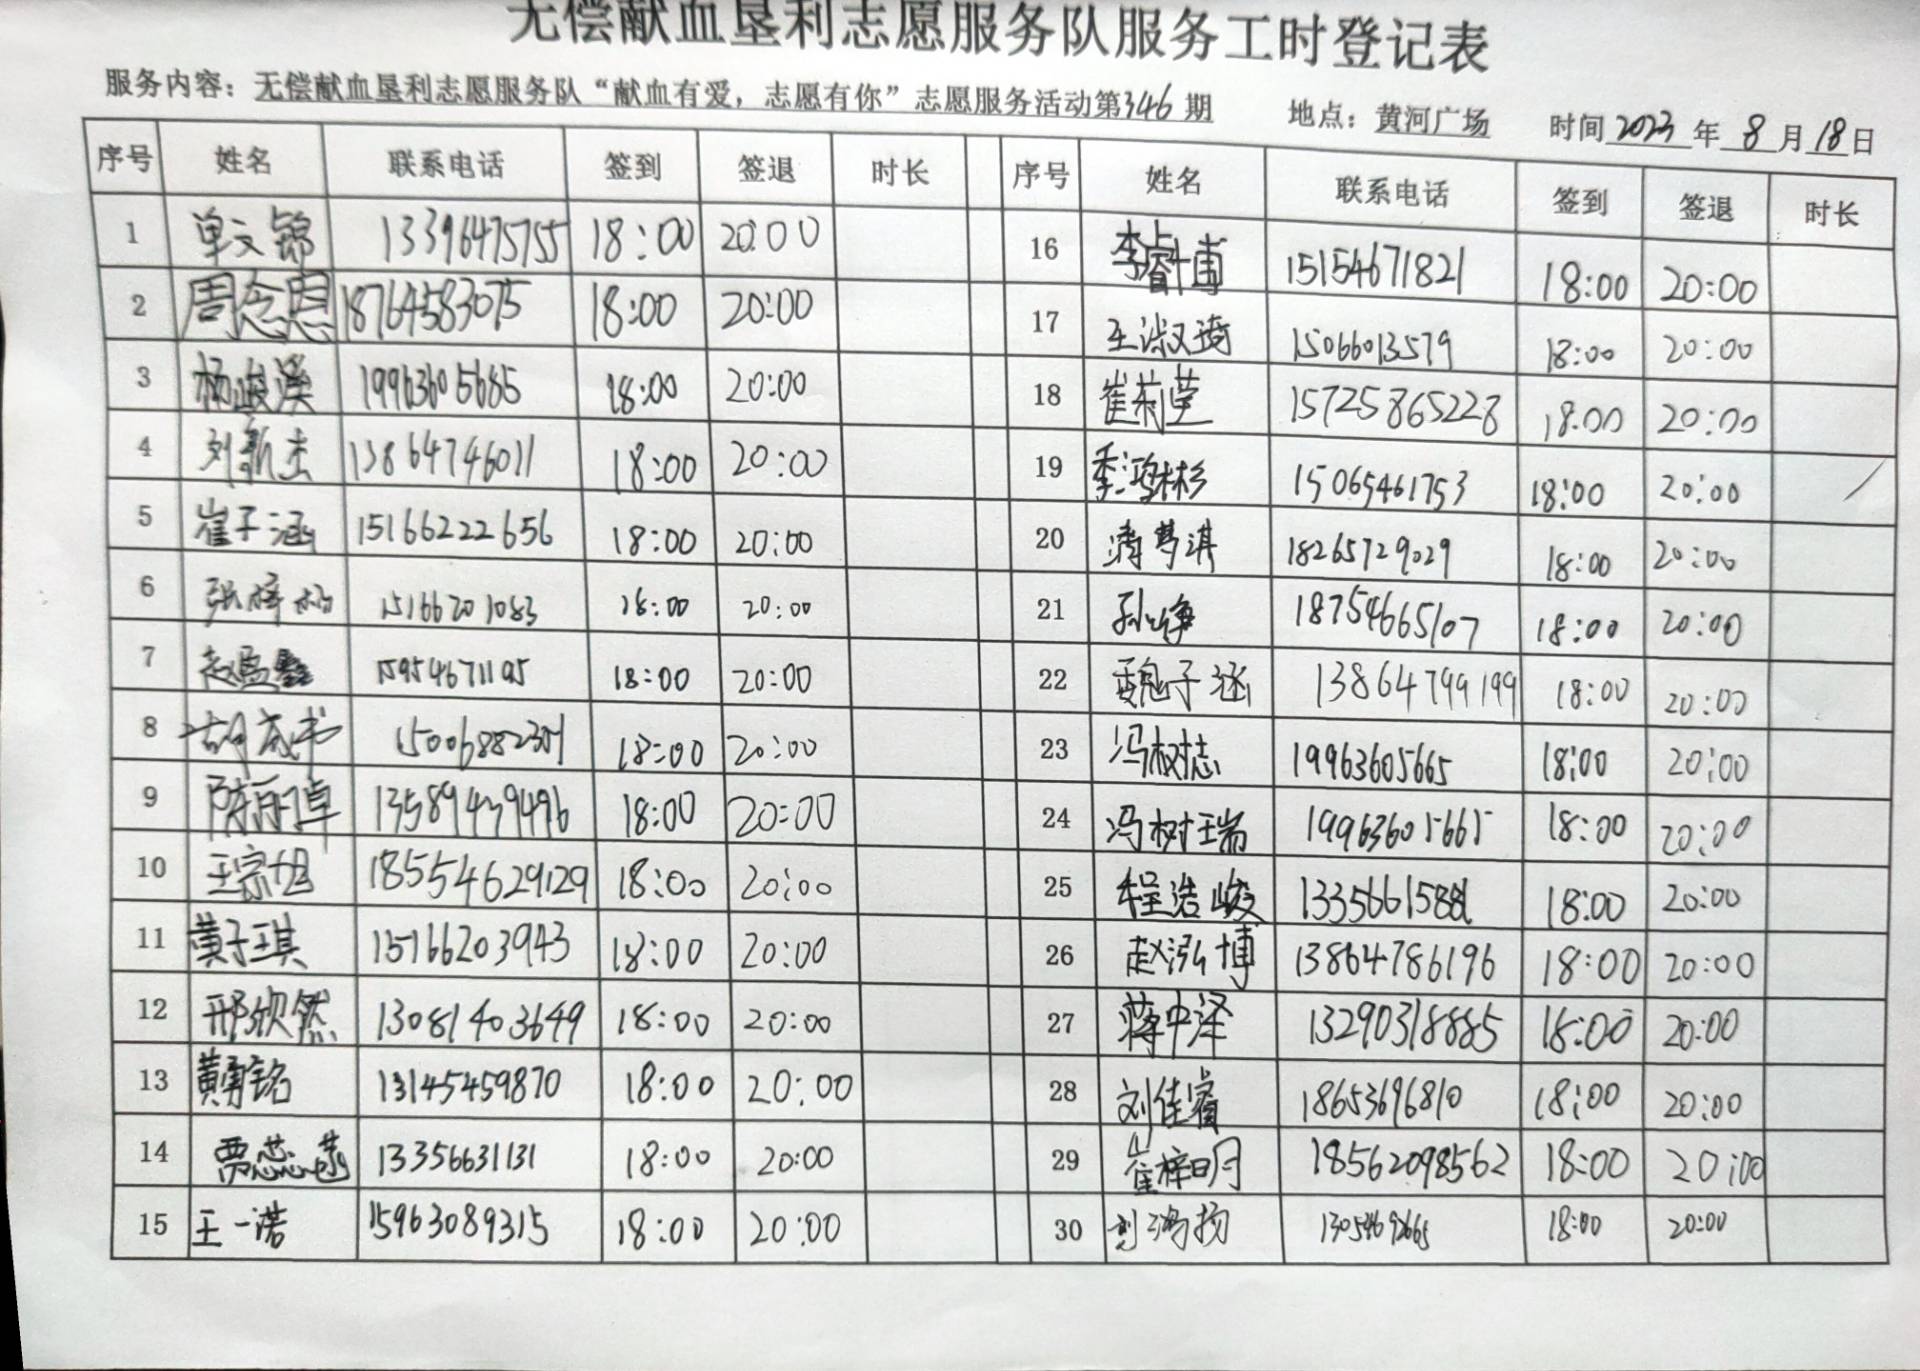 无偿献血垦利志愿服务队服务工时登记表
服务内容：无偿献血垦利志愿服务队“献血有爱，志愿有你”志愿服务活动第346期 地点：黄河广场 时间2023年8月18日
序号 姓名 联系电话 签到 签退 时长 序号 姓名 联系电话 签到 签退 时长
1 单文锦 13396475755 18:00 20:00 16 李睿甫 15154671821 18:00 20:00
2 周念恩 18764583075 18:00 20:00 17 王淑琦 15066013579 18:00 20:00
3 杨峻溪 19963605685 18:00 20:00 18 崔莉莹 15725865228 18:00 20:00
4 刘新杰 13864746011 18:00 20:00 19 季鸿彬 15065461753 18:00 20:00
5 崔子涵 15166222656 18:00 20:00 20 梦淇 18265729029 18:00 20:00
6 张梓 15166201083 18:00 20:00 21 孙峥 18754665107 18:00 20:00
7 赵盈鑫 15954671195 18:00 20:00 22 魏子涵 13864799199 18:00 20:00
8 胡书 18:00 20:00 23 冯树志 19963605665 18:00 20:00
9 陈雨卓 13589439496 18:00 20:00 24 冯树瑞 19963605665 18:00 20:00
10 王宗旭 18554629129 18:00 20:00 25 程浩峻 18:00 20:00
11 黄子琪 15166203943 18:00 20:00 26 赵泓博 13864786196 18:00 20:00
12 邢欣然 13081403649 18:00 20:00 27 蒋中泽 13290318885 18:00 20:00
13 黄勇铭 13145459870 18:00 20:00 28 刘佳睿 18653696810 18:00 20:00
14 贾蕊菡 13356631131 18:00 20:00 29 崔梓明 18562098562 18:00 20:00
15 王一诺 15963089315 18:00 20:00 30 刘鸿扬 18:00 20:00